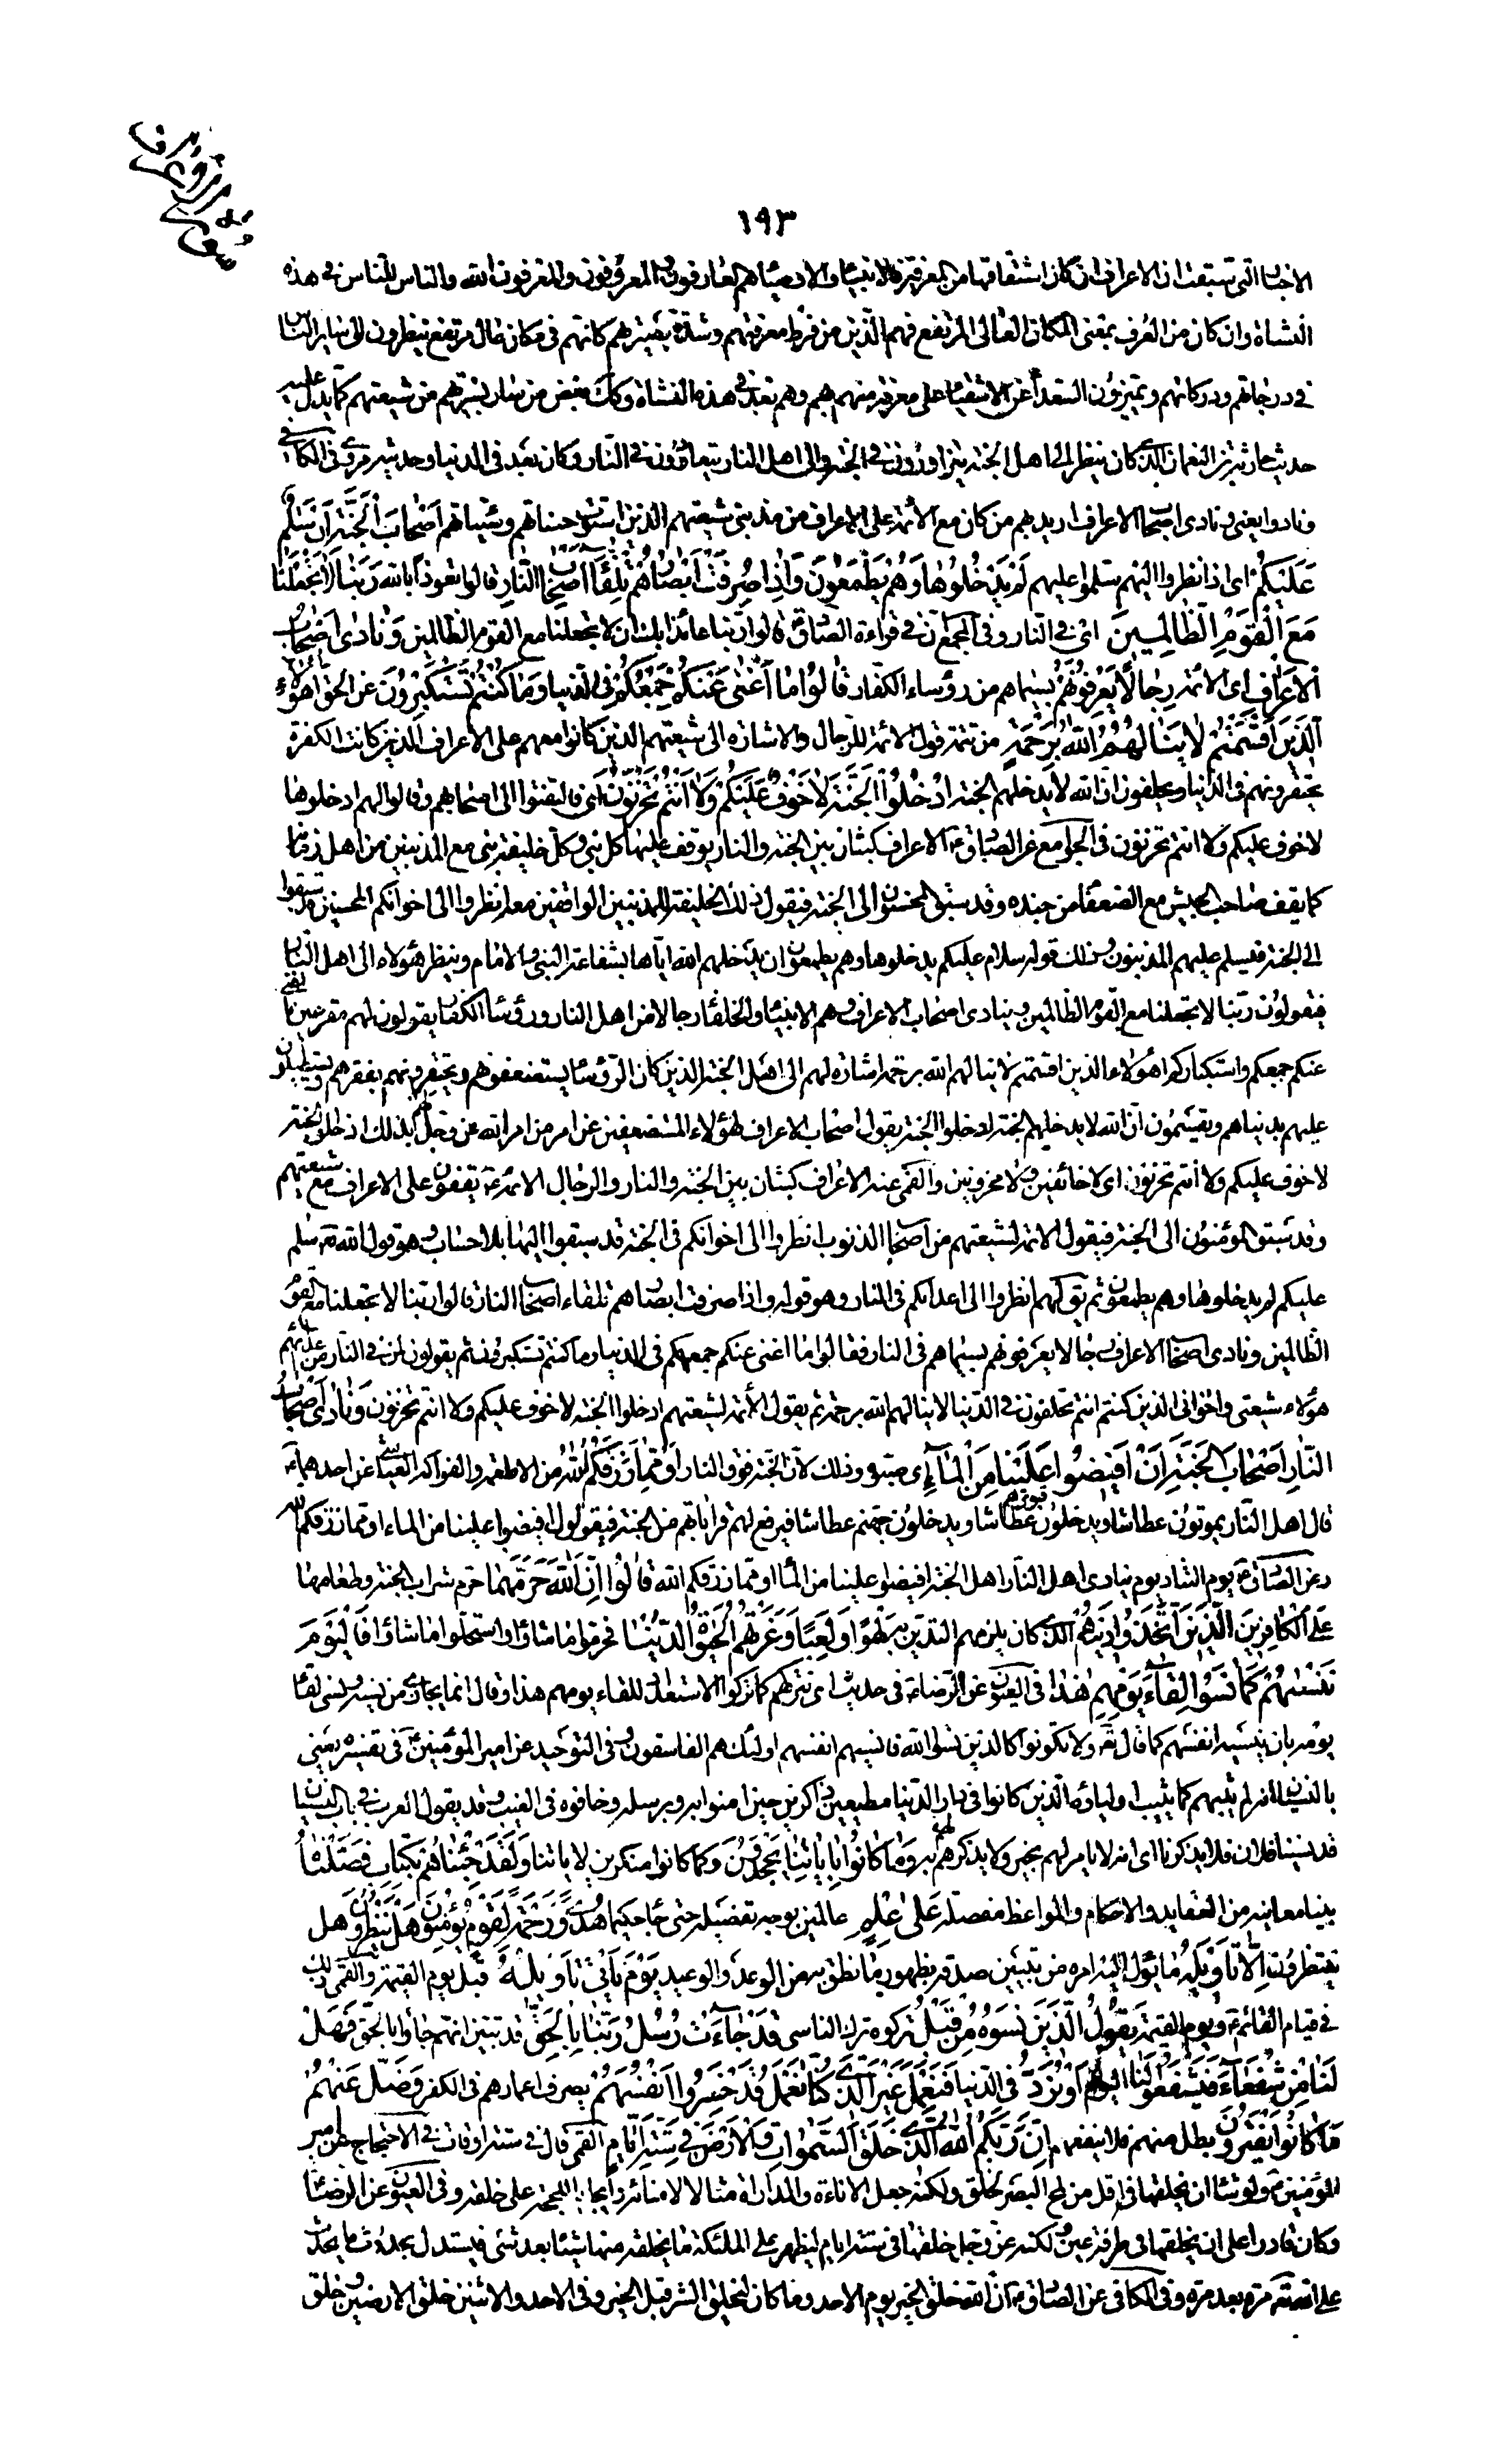 سورة الاعراف
١٩٣
الاخبار التي سبقت ان الاعراف ان كان اشتقاقها من المعرفة فالانبياء والاوصياء هم العارفون والمعروفون والمعرفون الله والناس للناس في هذه
النشأة وان كان من العرف بمعنى المكان العالي المرتفع فهم الذين من فرط معرفتهم وشدة بصيرتهم كانهم في مكان عال مرتفع ينظرون الى ساير الناس
في درجاتهم ودركاتهم ويميزون السعداء عن الاشقياء على معرفة منهم بهم وهم بعد في هذه النشأة وكذلك بعض من سار بسيرتهم من شيعتهم كما يدل عليه
حديث حارثة بن النعمان الذي كان ينظر الى اهل الجنة يتزاورون في الجنة والى اهل النار يتعاوون في النار وكان بعد في الدنيا وحديثه مروي في الكافي
ونادوا يعني ونادى اصحاب الاعراف اريد بهم من كان مع الائمة على الاعراف من مذنبي شيعتهم الذين استوت حسناتهم وسيئاتهم اَصْحابَ الْجَنَّةِ اَنْ سَلامٌ
عَلَيْكُمْ اى اذا نظروا اليهم سلموا عليهم لَمْ يَدْخُلُوها وَهُمْ يَطْمَعُونَ وَاِذا صُرِفَتْ اَبْصارُهُمْ تِلْقاءَ اَصْحابِ النّارِ قالوا نعوذا بالله رَبَّنا لا تَجْعَلْنا
مَعَ الْقَوْمِ الظّالِمينَ اى في النار وفي المجمع ان في قراءة الصادق ع قالوا ربنا عائذا بك ان لا تجعلنا مع القوم الظالمين وَنادى اَصْحابُ
الاَعْرافِ اى الائمة رِجالاً يَعْرِفُونَهُمْ بسيماهم من رؤساء الكفار قالُوا ما اَغْنى عَنْكُمْ جَمْعُكُمْ في الدنيا وَما كُنْتُمْ تَسْتَكْبِرُونَ عن الحق اَهؤُلاءِ
الَّذينَ اَقْسَمْتُمْ لا يَنالُهُمُ اللهُ بِرَحْمَةٍ من تتمة قول الائمة للرجال والاشارة الى شيعتهم الذين كانوا معهم على الاعراف الذين كانت الكفرة
يحتقرونهم في الدنيا ويحلفون ان الله لا يدخلهم الجنة اُدْخُلُوا الْجَنَّةَ لا خَوْفٌ عَلَيْكُمْ وَلا اَنْتُمْ تَحْزَنُونَ اى فالتفتوا الى اصحابهم وقالوا لهم ادخلوها
لا خوف عليكم ولا انتم تحزنون في الجوامع عن الصادق ع الاعراف كثبان بين الجنة والنار يوقف عليها كل نبي وكل خليفة نبي مع المذنبين من اهل زمانه
كما يقف صاحب الجيش مع الضعفاء من جنده وقد سبق المحسنون الى الجنة فيقول ذلك الخليفة للمذنبين الواقفين معه انظروا الى اخوانكم المحسنين قد سبقوا
الى الجنة فيسلم عليهم المذنبون وذلك قوله سلام عليكم لم يدخلوها وهم يطمعون ان يدخلهم الله اياها بشفاعة النبي والامام وينظر هؤلاء الى اهل النار
فيقولون ربنا لا تجعلنا مع القوم الظالمين وينادى اصحاب الاعراف وهم الانبياء والخلفاء رجالا من اهل النار ورؤساء الكفار يقولون لهم مقرعين ما اغنى
عنكم جمعكم واستكباركم اهؤلاء الذين اقسمتم لا ينالهم الله برحمة اشارة لهم الى اهل الجنة الذين كان الرؤساء يستضعفونهم ويحتقرونهم بفقرهم ويستطيلون
عليهم بدنياهم ويقسمون ان الله لا يدخلهم الجنة ادخلوا الجنة يقول اصحاب الاعراف لهؤلاء المستضعفين عن امر من امر الله عز وجل لهم بذلك ادخلوا الجنة
لا خوف عليكم ولا انتم تحزنون اى لا خائفين ولا محزونين والقمى عنه الاعراف كثبان بين الجنة والنار والرجال الائمة ع يقفون على الاعراف مع شيعتهم
وقد سبق المؤمنون الى الجنة فيقول الائمة لشيعتهم من اصحاب الذنوب انظروا الى اخوانكم في الجنة قد سبقوا اليها بلا حساب وهو قول الله تع سلام
عليكم لم يدخلوها وهم يطمعون ثم يقال لهم انظروا الى اعدائكم في النار وهو قوله واذا صرفت ابصارهم تلقاء اصحاب النار قالوا ربنا لا تجعلنا مع القوم
الظالمين ونادى اصحاب الاعراف رجالا يعرفونهم بسيماهم في النار فقالوا ما اغنى عنكم جمعكم في الدنيا وما كنتم تستكبرون ثم يقولون لمن في النار من اعدائهم
هؤلاء شيعتى واخوانى الذين كنتم انتم تحلفون في الدنيا لا ينالهم الله برحمة ثم يقول الائمة لشيعتهم ادخلوا الجنة لا خوف عليكم ولا انتم تحزنون وَنادى اَصْحابُ
النّارِ اَصْحابَ الْجَنَّةِ اَنْ اَفيضُوا عَلَيْنا مِنَ الْماءِ اى صبوه وذلك لان الجنة فوق النار اَوْ مِمّا رَزَقَكُمُ اللهُ من الاطعمة والفواكه العياشي عن احدهما ع
قال اهل النار يموتون عطاشا ويدخلون قبورهم عطاشا ويدخلون جهنم عطاشا فيرفع لهم قراباتهم من الجنة فيقولون افيضوا علينا من الماء او مما رزقكم الله
وعن الصادق ع يوم التناد يوم ينادى اهل النار اهل الجنة افيضوا علينا من الماء او مما رزقكم الله قالُوا اِنَّ اللهَ حَرَّمَهُما حرم شراب الجنة وطعامها
عَلَى الْكافِرينَ الَّذينَ اتَّخَذُوا دينَهُمْ الذى كان يلزمهم التدين به لَهْواً وَلَعِباً وَغَرَّتْهُمُ الْحَيوةُ الدُّنْيا فحرموا ما شاؤا واستحلوا ما شاؤا فَالْيَوْمَ
نَنْسيهُمْ كَما نَسُوا لِقاءَ يَوْمِهِمْ هذا في العيون عن الرضا ع في حديث اى نتركهم كما تركوا الاستعداد للقاء يومهم هذا وقال انما يجازى من نسيه ونسى لقاء
يومه بان ينسيهم انفسهم كما قال تع ولا تكونوا كالذين نسوا الله فانسيهم انفسهم اولئك هم الفاسقون وفي التوحيد عن امير المؤمنين ع في تفسيره يعنى
بالنسيان انه لم يثبهم كما يثيب اولياءه الذين كانوا في دار الدنيا مطيعين ذاكرين حين امنوا به وبرسله وخافوه في الغيب وقد يقول العرب في باب النسيان
قد نسينا فلان فلا يذكرنا اى انه لا يامر لهم بخير ولا يذكرهم به وَما كانُوا بِاياتِنا يَجْحَدُونَ وكما كانوا منكرين لاياتنا وَلَقَدْ جِئْناهُمْ بِكِتابٍ فَصَّلْناهُ
بينا معانيه من العقايد والاحكام والمواعظ مفصلة عَلى عِلْمٍ عالمين بوجه تفصيله حتى جاء حكيما هُدىً وَرَحْمَةً لِقَوْمٍ يُؤْمِنُونَ هَلْ يَنْظُرُونَ هل
ينتظرون اِلاّ تَأْويلَهُ ما يؤل اليه امره من تبيين صدقه بظهور ما نطق به من الوعد والوعيد يَوْمَ يَأْتي تَأْويلُهُ قيل يوم القيمة والقمى ذلك
في قيام القائم ع ويوم القيمة يَقُولُ الَّذينَ نَسُوهُ مِنْ قَبْلُ تركوه ترك الناسى قَدْ جاءَتْ رُسُلُ رَبِّنا بِالْحَقِّ قد تبين انهم جاؤا بالحق فَهَلْ
لَنا مِنْ شُفَعاءَ فَيَشْفَعُوا لَنا اليوم اَوْ نُرَدُّ في الدنيا فَنَعْمَلَ غَيْرَ الَّذى كُنّا نَعْمَلُ قَدْ خَسِرُوا اَنْفُسَهُمْ بصرف اعمارهم في الكفر وَضَلَّ عَنْهُمْ
ما كانُوا يَفْتَرُونَ بطل منهم فلا ينفعهم اِنَّ رَبَّكُمُ اللهُ الَّذى خَلَقَ السَّمواتِ وَالاَرْضَ في سِتَّةِ اَيّامٍ القمى قال في ستة اوقات في الاحتجاج عن امير
المؤمنين ع ولو شاء ان يخلقها في اقل من لمح البصر لخلق ولكنه جعل الاناءة والمداراة مثالا لامنائه وايجابا للحجة على خلقه وفي العيون عن الرضا ع
وكان قادرا على ان يخلقها في طرفة عين ولكنه عز وجل خلقها في ستة ايام ليظهر على الملئكة ما يخلقه منها شيئا بعد شئ فيستدل بحدوث ما يحدث
على الله تع مرة بعد مرة وفي الكافى عن الصادق ع ان الله خلق الخير يوم الاحد وما كان ليخلق الشر قبل الخير وفي الاحد والاثنين خلق الارضين وخلق